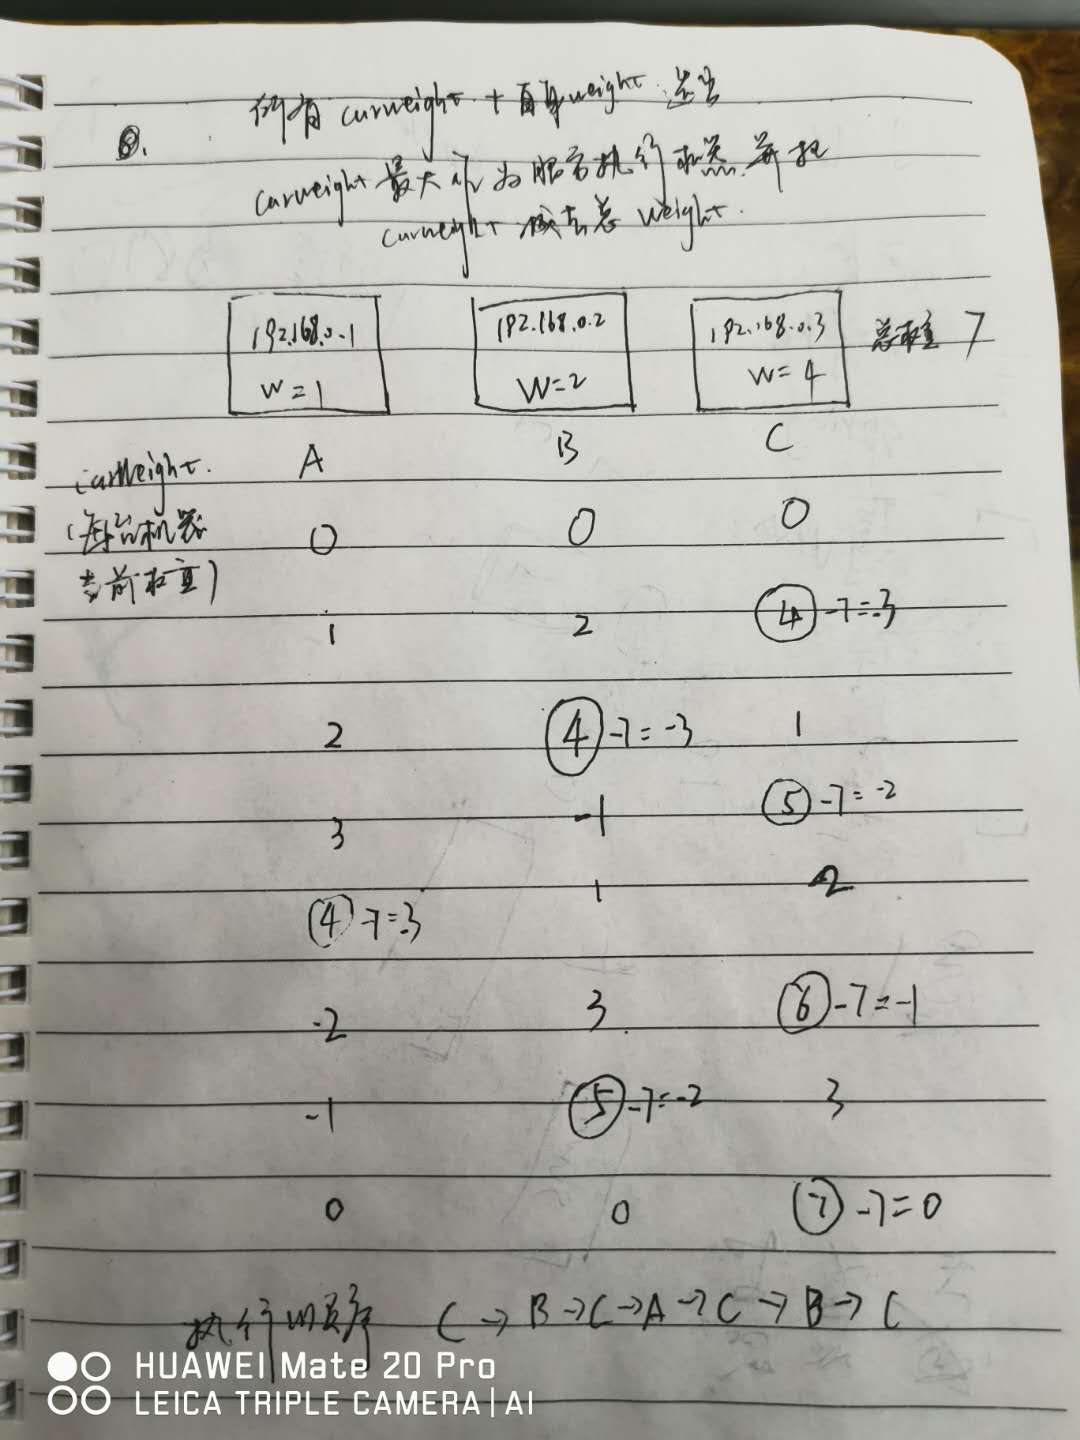 ⑧. 所有 curweight + 自身weight 选出
curweight 最大的 为服务执行 然 并把
curweight 减去总 weight.
192.168.0.1 192.168.0.2 192.168.0.3 总权重 7
W=1 W=2 W=4
curWeight. A B C
(每台机器 0 0 0
当前权重)
1 2 4 -7=-3
2 4 -7=-3 1
3 -1 5 -7=-2
4 -7=-3 1 2
-2 3 6 -7=-1
-1 5 -7=-2 3
0 0 7 -7=0
执行顺序 C → B → C → A → C → B → C
HUAWEI Mate 20 Pro
LEICA TRIPLE CAMERA | AI